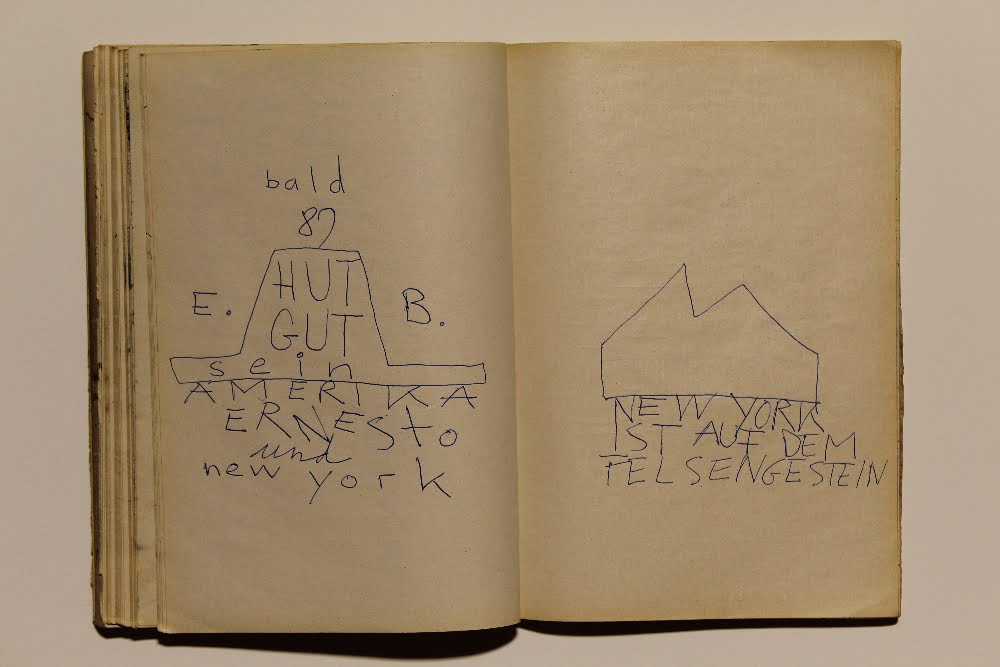 bald
87
E. HUT B.
GUT
sein
AMERIKA
ERNESTO
und
new york
NEW YORK
IST AUF DEM
FELSENGESTEIN